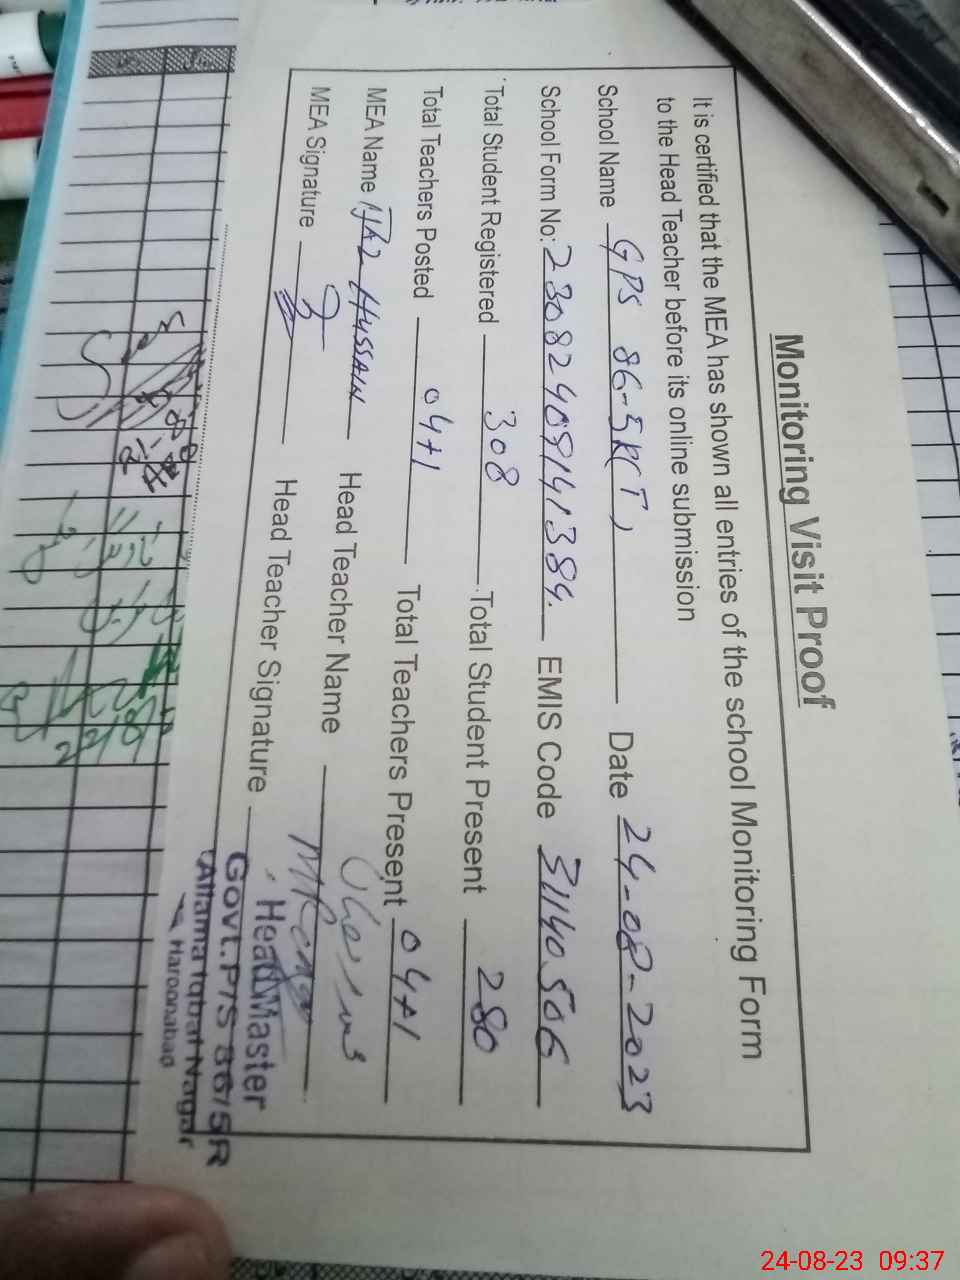 Monitoring Visit Proof
It is certified that the MEA has shown all entries of the school Monitoring Form
to the Head Teacher before its online submission
School Name GPS 86-5R(T) Date 24-08-2023
School Form No: 23082409141384. EMIS Code 31140506
Total Student Registered 308 Total Student Present 280
Total Teachers Posted 04+1 Total Teachers Present 04+1
MEA Name IJAZ HUSSAIN Head Teacher Name
MEA Signature Head Teacher Signature
Head Master
Govt. P/S 86/5R
Allama Iqbal Nagar
Haroonabad
24-08-23 09:37